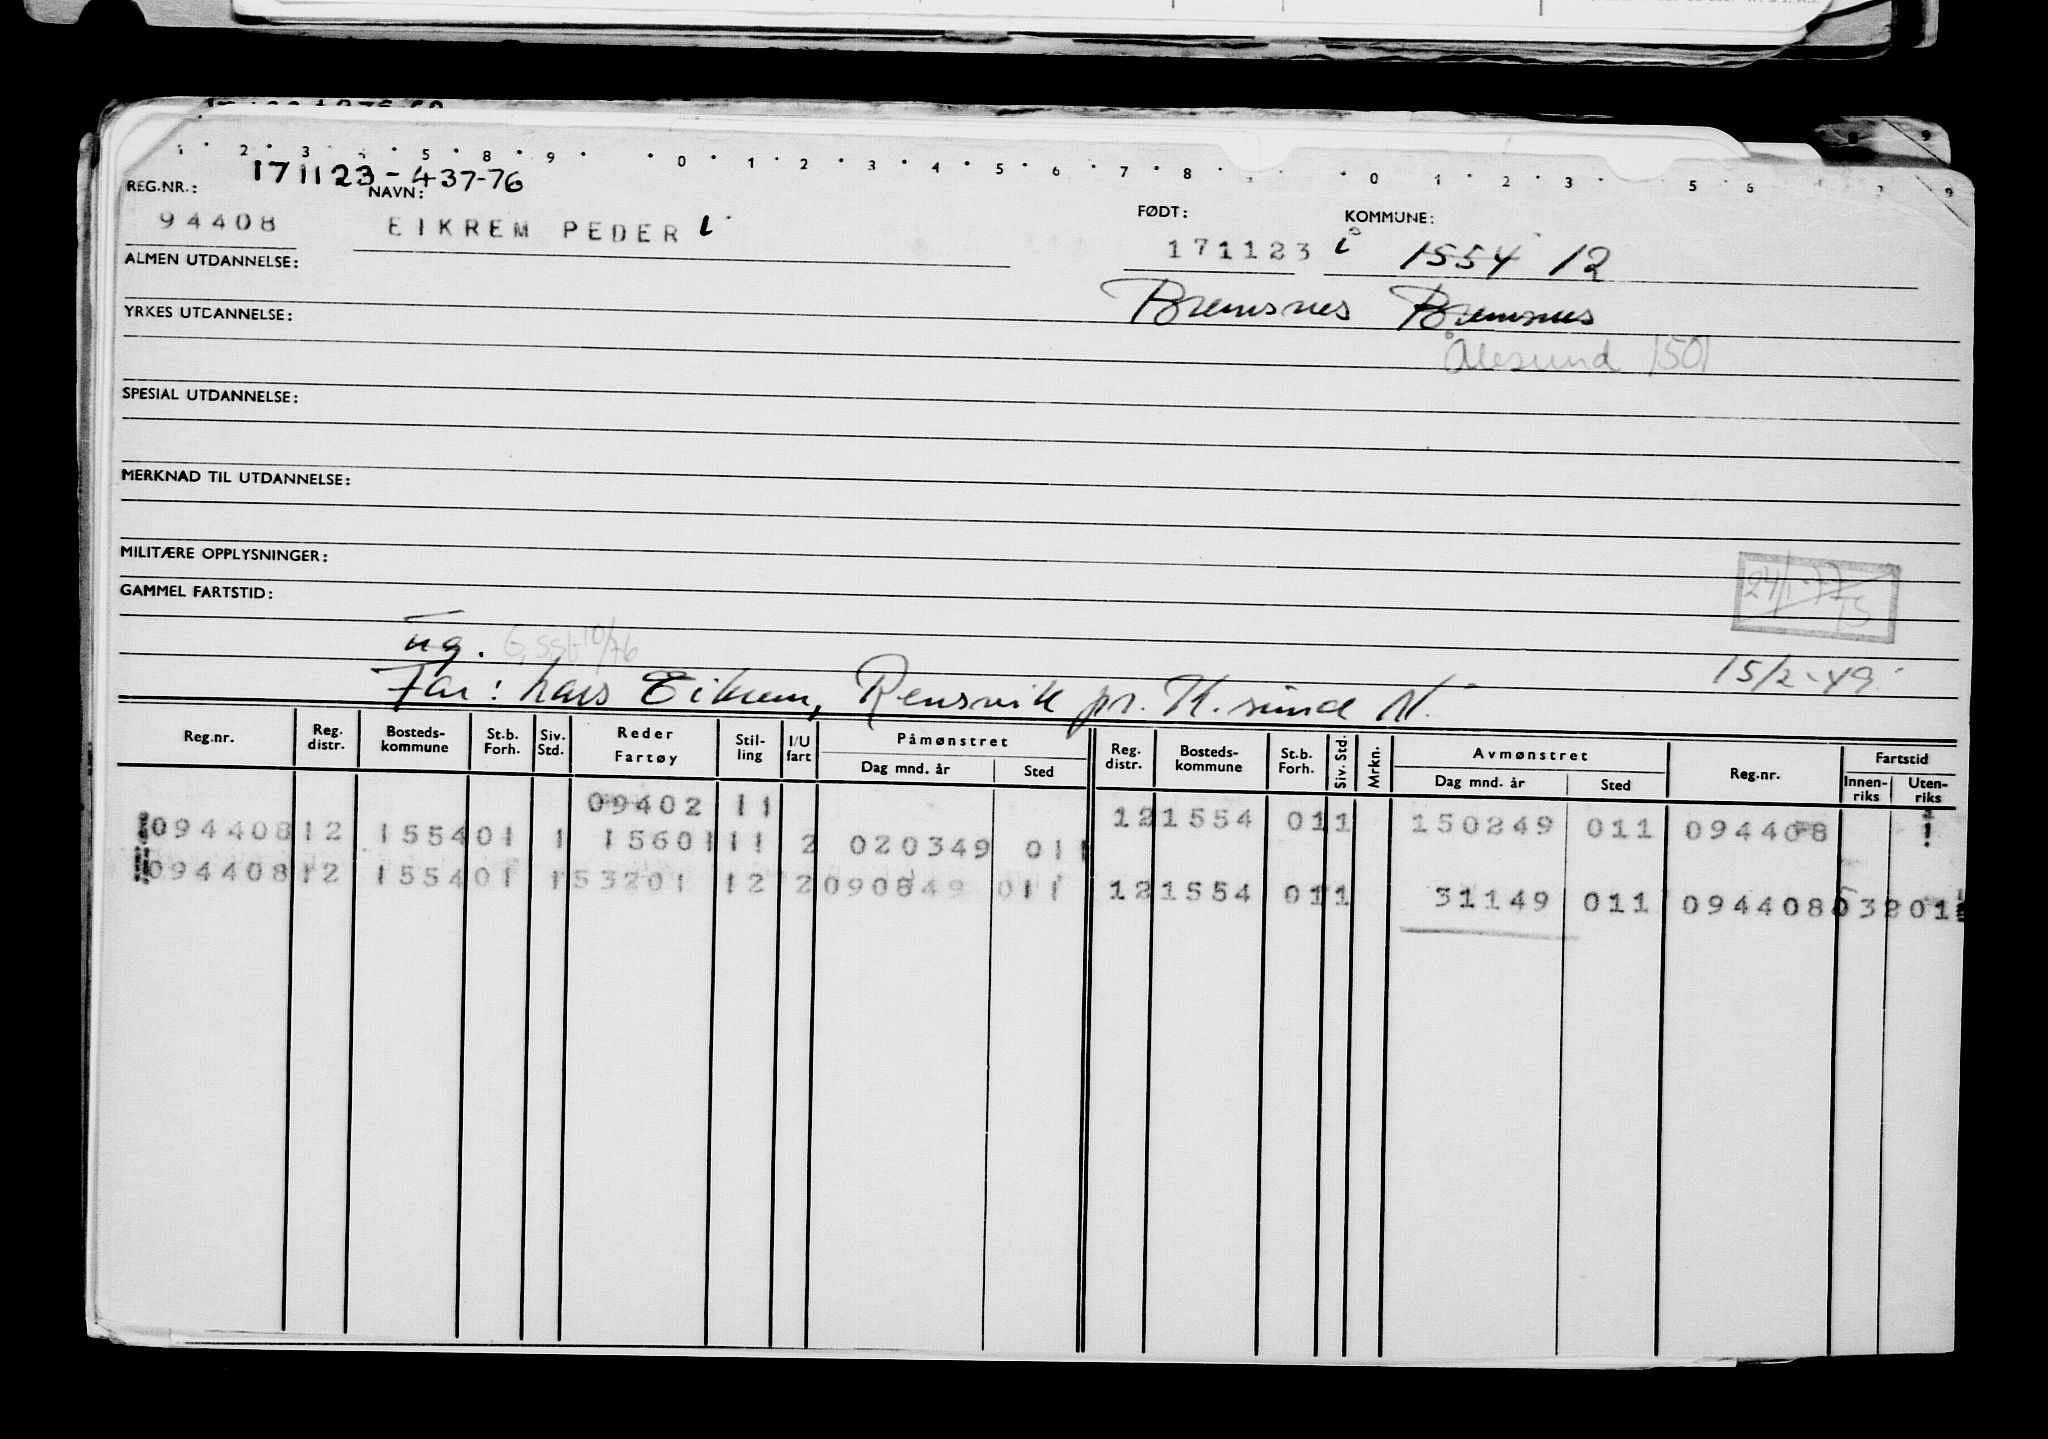 1 2 3 4 5 8 9 0 1 2 3 4 5 6 7 8 0 1 2 3 5 6 9
171123-437-76
REG.NR.: NAVN: FØDT: KOMMUNE:
94408 EIKREM PEDER L 171123 i 1554 12
ALMEN UTDANNELSE:
Bremsnes Bremsnes
YRKES UTDANNELSE:
Ålesund 1501
SPESIAL UTDANNELSE:
MERKNAD TIL UTDANNELSE:
MILITÆRE OPPLYSNINGER:
24/1-77
GAMMEL FARTSTID:
ug. 10/76
15/2-49
Far: Lars Eikrem, Rensvik pr. K.sund N.
Reg.nr. Reg. distr. Bosteds-kommune St.b. Forh. Siv. Std. Reder Fartøy Stil-ling I/U fart Påmønstret Dag mnd. år Sted Reg. distr. Bosteds-kommune St.b. Forh. Siv. Std. Mrkn. Avmønstret Dag mnd. år Sted Reg.nr. Fartstid Innen-riks Uten-riks
09402 11 12 1554 01 1 150249 011 094408
094408 12 1554 01 1 15601 11 2 020349 011
094408 12 1554 01 1 53201 12 2 090849 011 12 1554 01 1 31149 011 094408 53201